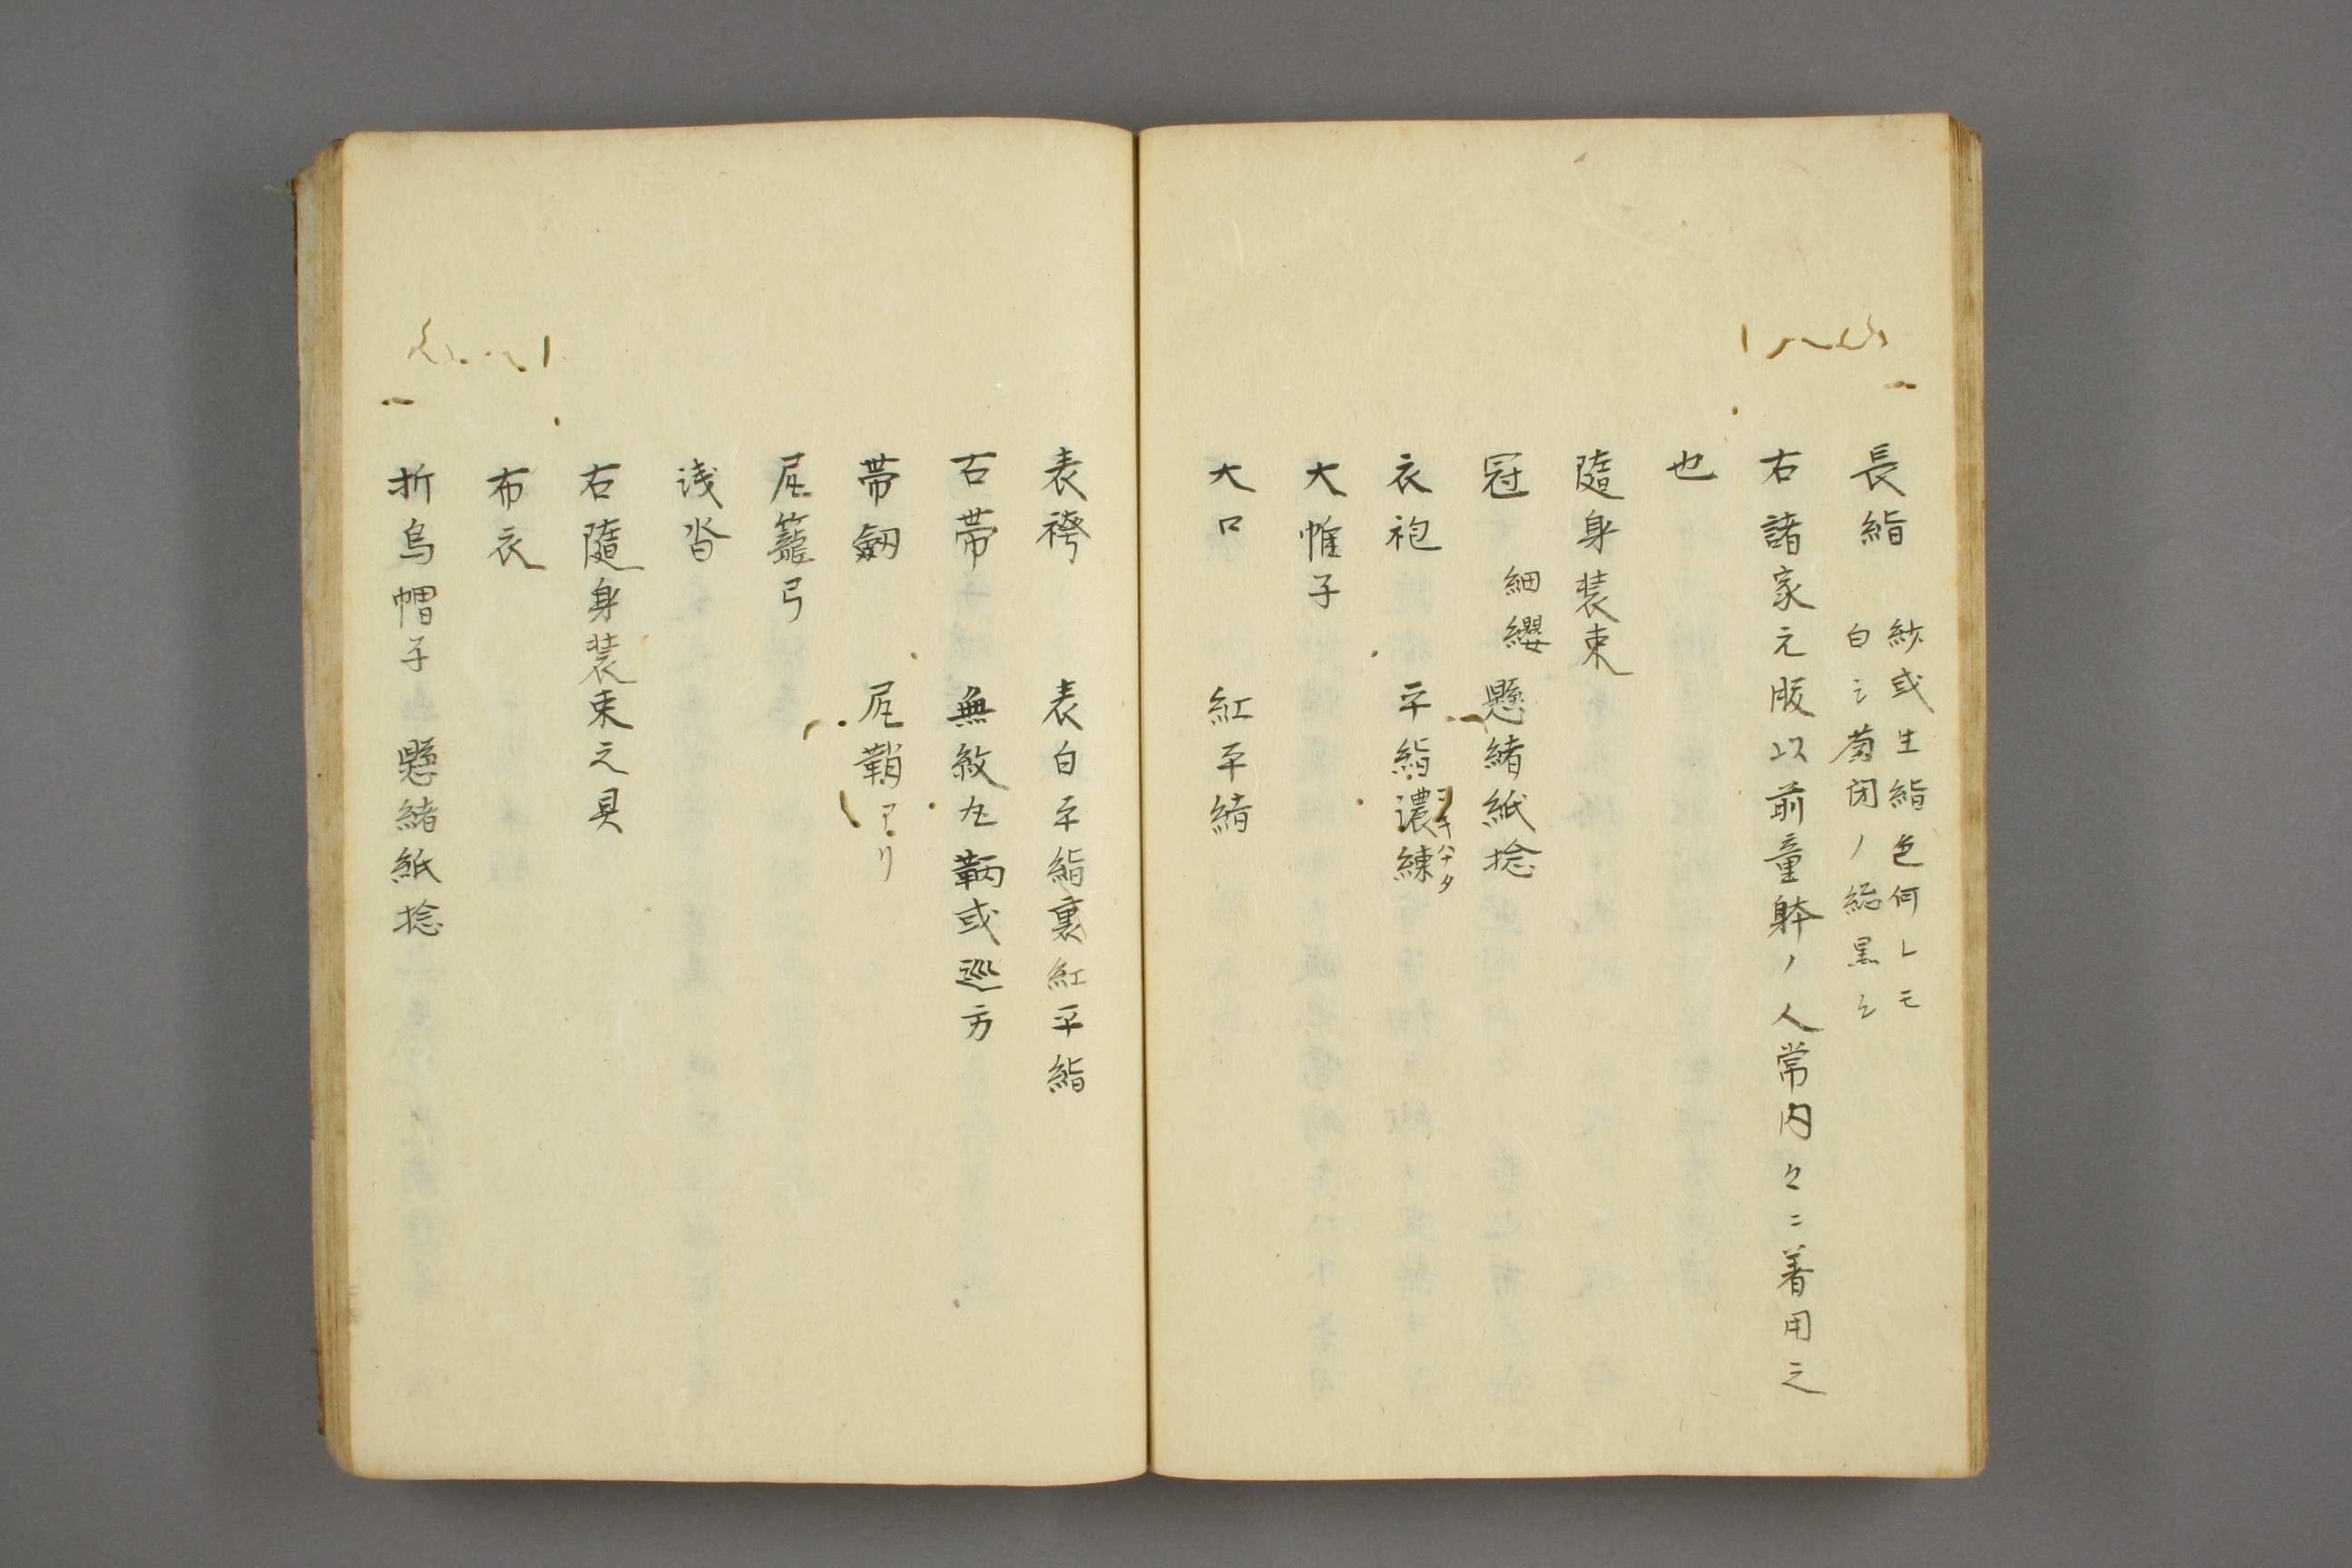 長絹
紗或生絹色何レモ
白シ菊閉ノ総黒シ
右諸家元服以前童躰ノ人常内々ニ着用之
也
隨身装束
冠 細纓 懸緒紙捻
衣袍 平絹濃縹
コキハナタ
大帷子
大口 紅平絹
表袴 表白平絹裏紅平絹
石帯 無紋丸鞆或巡方
帯剱 尻鞘アリ
尻籠弓
浅沓
右隨身装束之具
布衣
折烏帽子 懸緒紙捻